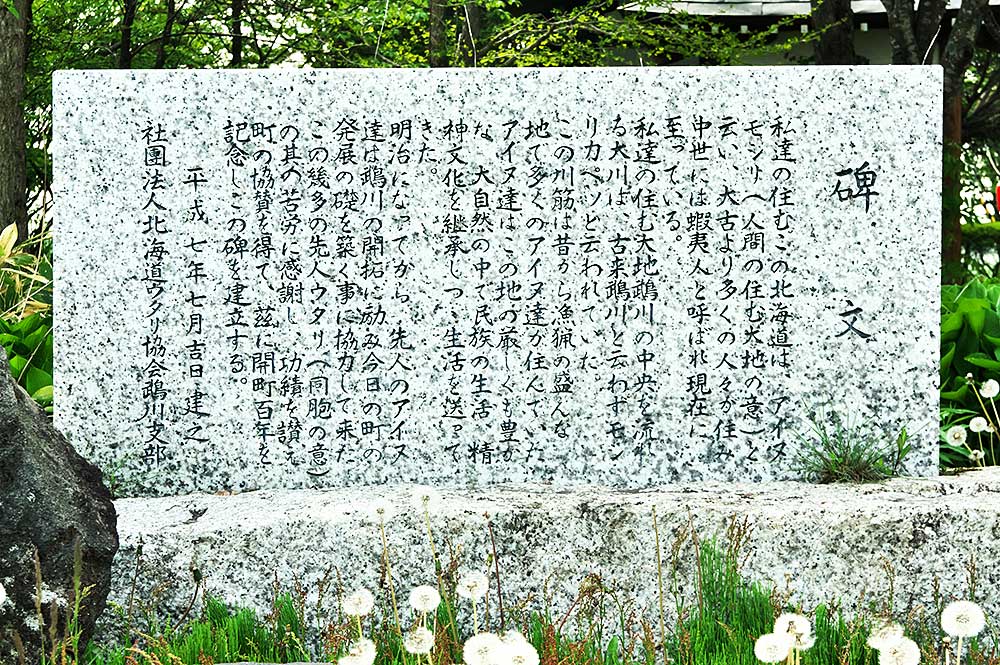 碑文
私達の住むこの北海道は、アイヌ
モシリ(人間の住む大地の意)と
云い、太古より多くの人々が住み
中世には蝦夷人と呼ばれ現在に
至っている。
私達の住む大地鵡川の中央を流れ
る大川は、古来鵡川と云わずモシ
リカペツと云われていた。
この川筋は昔から漁猟の盛んな
地で多くのアイヌ達が住んでいた
アイヌ達はこの地の厳しくも豊か
な、大自然の中で民族の生活、精
神文化を継承しつゝ生活を送って
きた。
明治になってから、先人のアイヌ
達は鵡川の開拓に励み今日の町の
発展の礎を築く事に協力して来た
この幾多の先人ウタリ(同胞の意)
の其の苦労に感謝し、功績を讃え
町の協賛を得て、茲に開町百年を
記念しこの碑を建立する。
平成七年七月吉日建之
社團法人北海道ウタリ協会鵡川支部